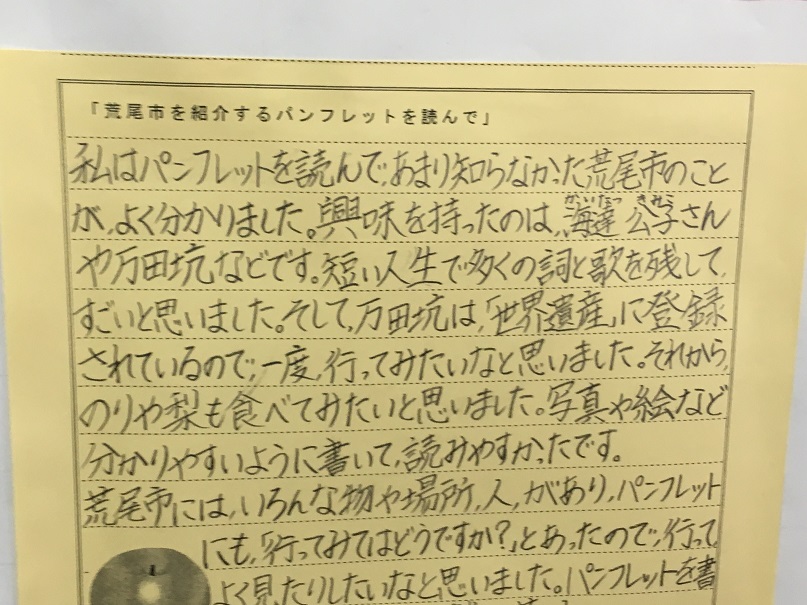 「荒尾市を紹介するパンフレットを読んで」
私はパンフレットを読んで、あまり知らなかった荒尾市のこと
が、よく分かりました。興味を持ったのは、海達公子さん
や万田坑などです。短い人生で多くの詞と歌を残して、
すごいと思いました。そして、万田坑は、「世界遺産」に登録
されているので、一度、行ってみたいなと思いました。それから、
のりや梨も食べてみたいと思いました。写真や絵など
分かりやすいように書いて、読みやすかったです。
荒尾市には、いろんな物や場所、人、があり、パンフレット
にも、「行ってみてはどうですか？」とあったので、行って、
よく見たりしたいなと思いました。パンフレットを書